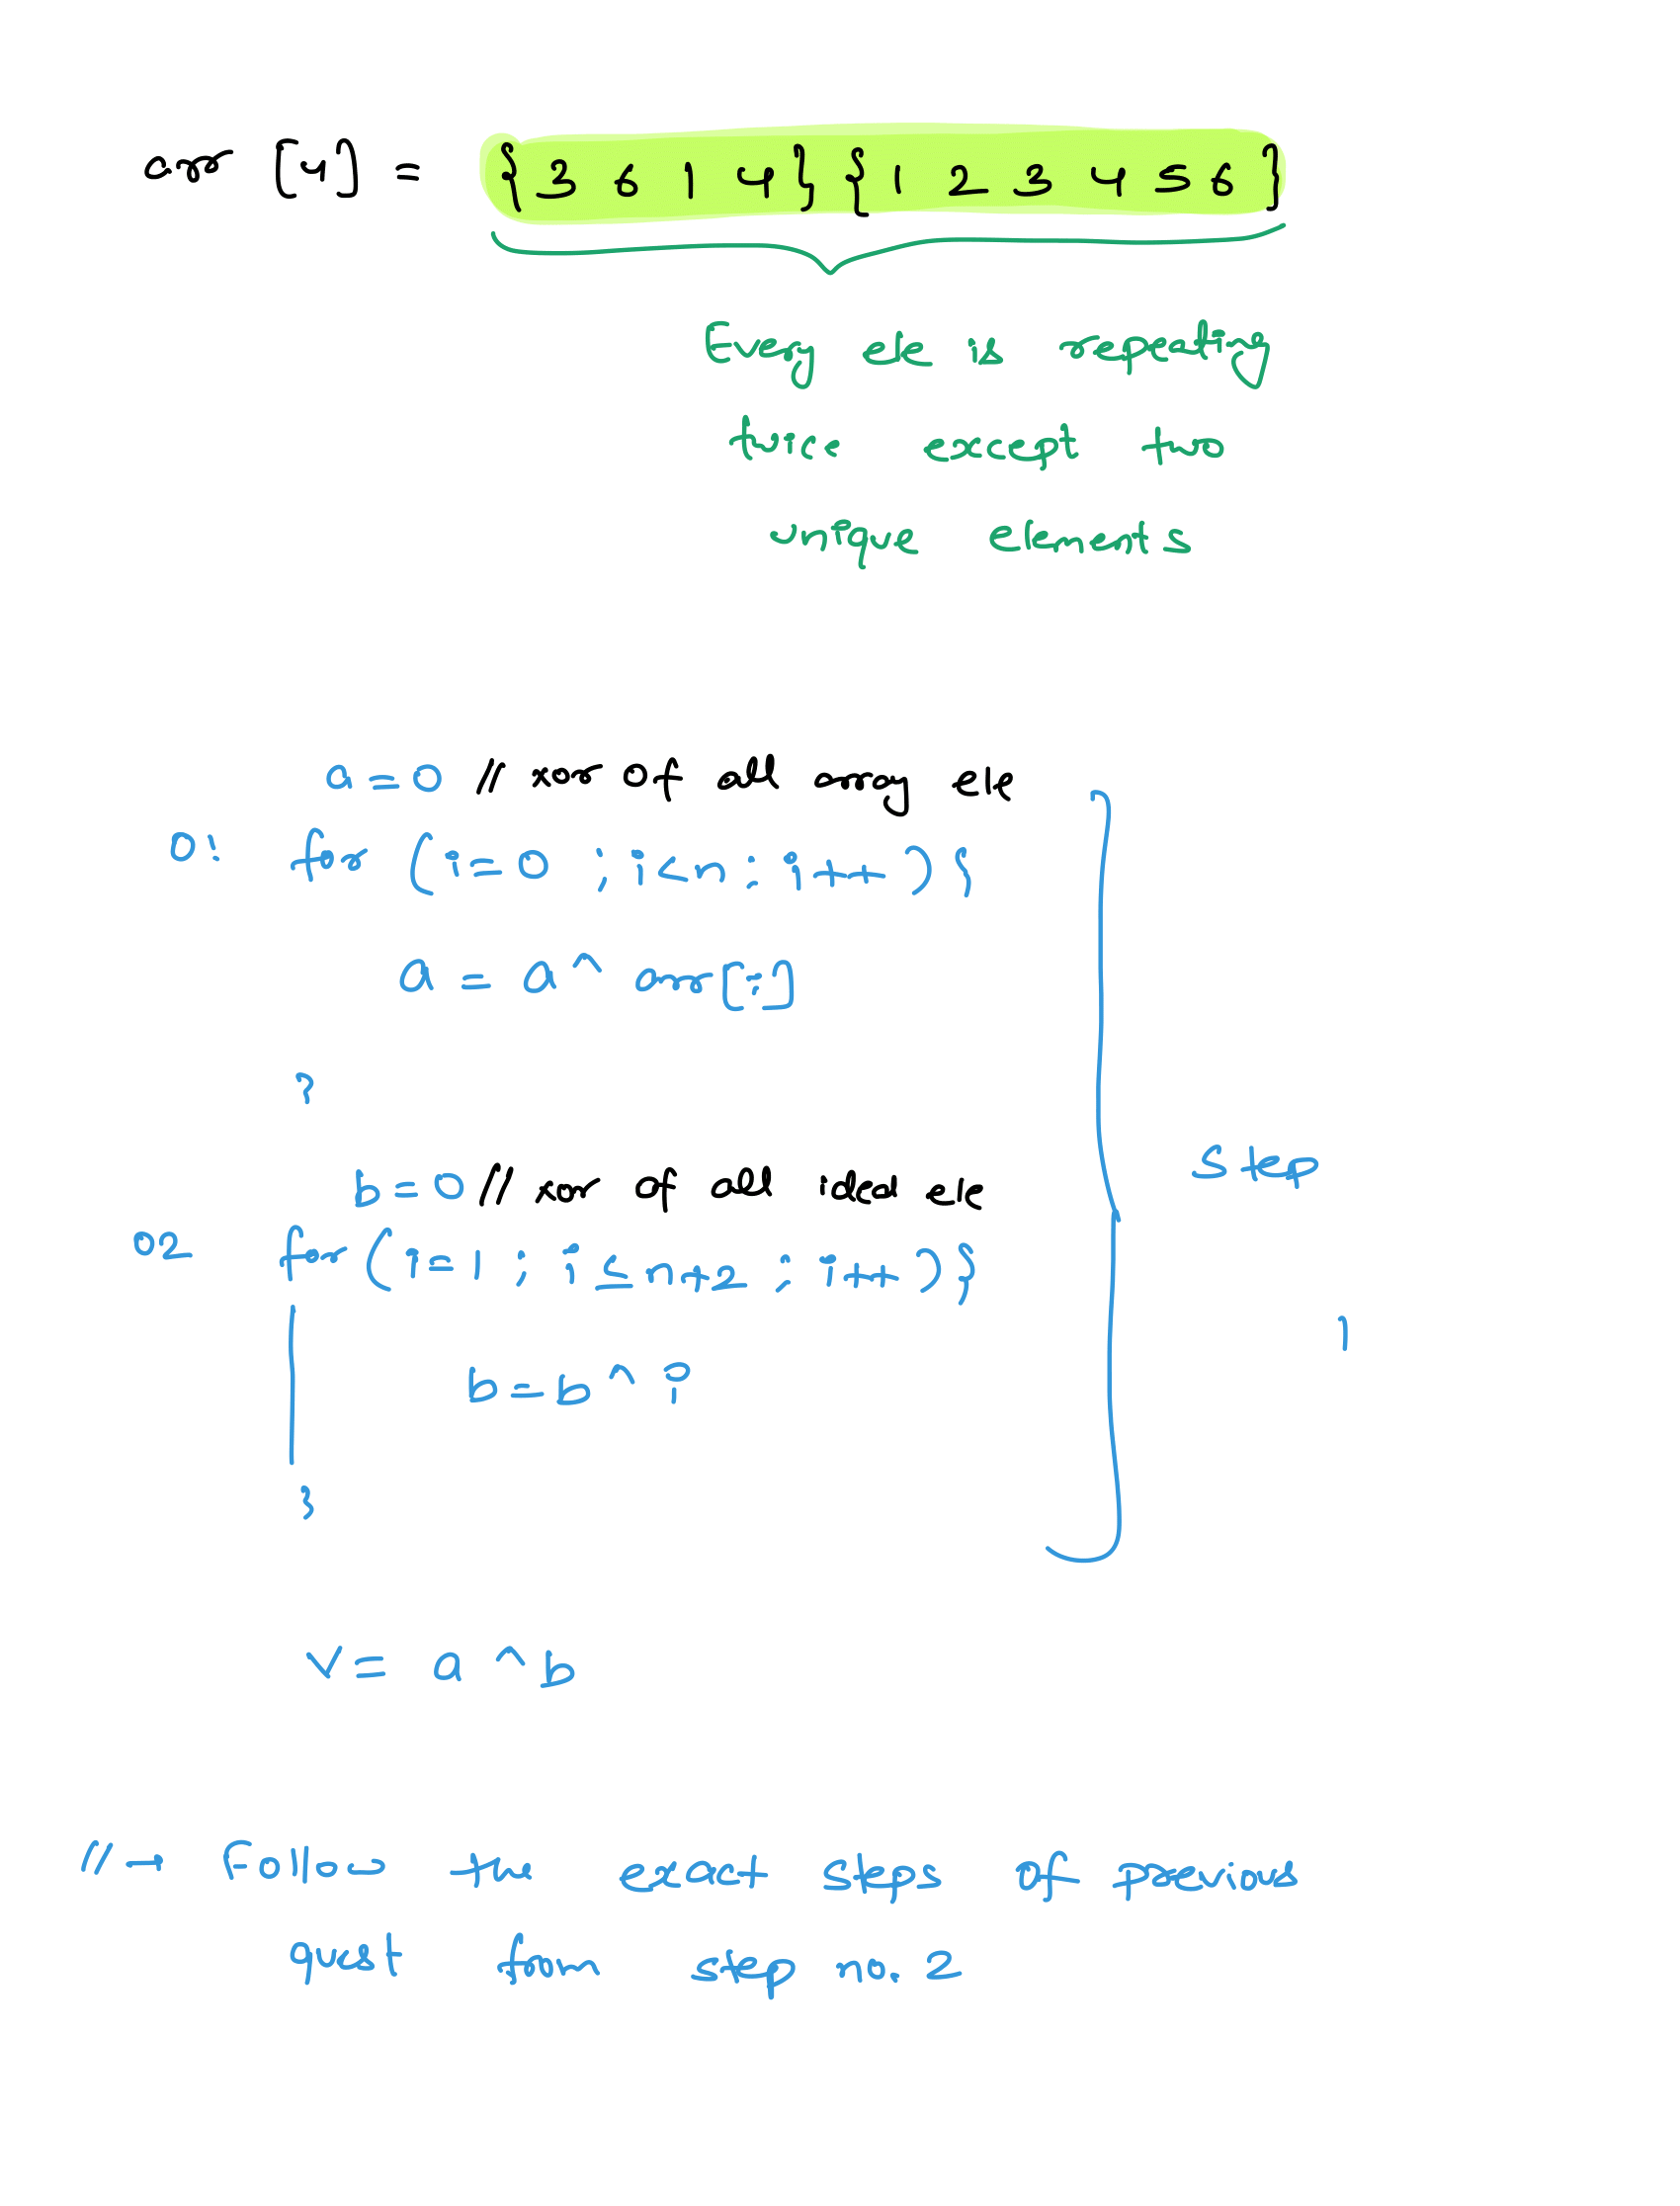 arr [4] = { 3 6 1 4 } { 1 2 3 4 5 6 }
Every ele is repeating
twice except two
unique elements
a = 0 // xor of all array ele
0: for ( i=0 ; i<n ; i++ ) {
a = a ^ arr[i]
}
b = 0 // xor of all ideal ele
02 for ( i=1 ; i ≤ n+2 ; i++ ) {
b = b ^ i
}
Step
1
v = a ^ b
// → Follow the exact steps of previous
quest from step no. 2